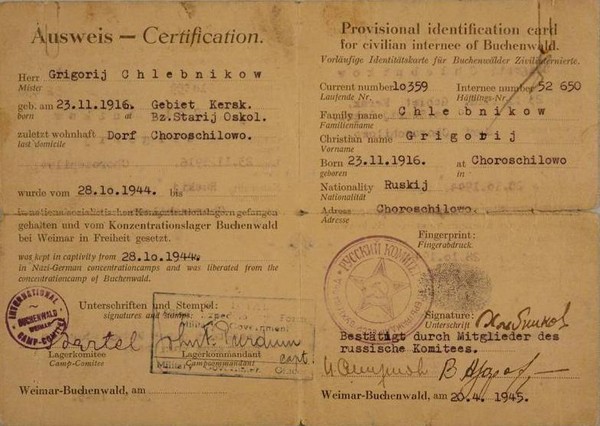 Ausweis — Certification.
Herr Grigorij Chlebnikow
Mister
geb. am 23.11.1916. Gebiet Kersk.
born at Bz.Starij Oskol.
zuletzt wohnhaft Dorf Choroschilowo.
last domicile
wurde vom 28.10.1944. bis
in nationalsozialistischen Konzentrationslagern gefangen
gehalten und vom Konzentrationslager Buchenwald
bei Weimar in Freiheit gesetzt.
was kept in captivity from 28.10.1944.
in Nazi-German concentrationcamps and was liberated from the
concentrationcamp of Buchenwald.
Unterschriften und Stempel:
signatures and stamps:
INTERNATIONAL
BUCHENWALD
WEIMAR
CAMP-COMITEE
Military Government
Lagerkomitee
Camp-Comitee
Lagerkommandant
Campcommandant
capt.
Weimar-Buchenwald, am
Provisional identification card
for civilian internee of Buchenwald.
Vorläufige Identitätskarte für Buchenwälder Zivilinternierte.
Current number 10359 Internee number 52 650
Laufende Nr. Häftlings-Nr.
Family name Chlebnikow
Familienname
Christian name Grigorij
Vorname
Born 23.11.1916. at Choroschilowo
geboren in
Nationality Ruskij
Nationalität
Adress Choroschilowo.
Adresse
Fingerprint:
Fingerabdruck.
РУССКИЙ КОМИТЕТ
Signature:
Unterschrift
Bestätigt durch Mitglieder des
russische Komitees.
Weimar-Buchenwald, am 20.4.1945.